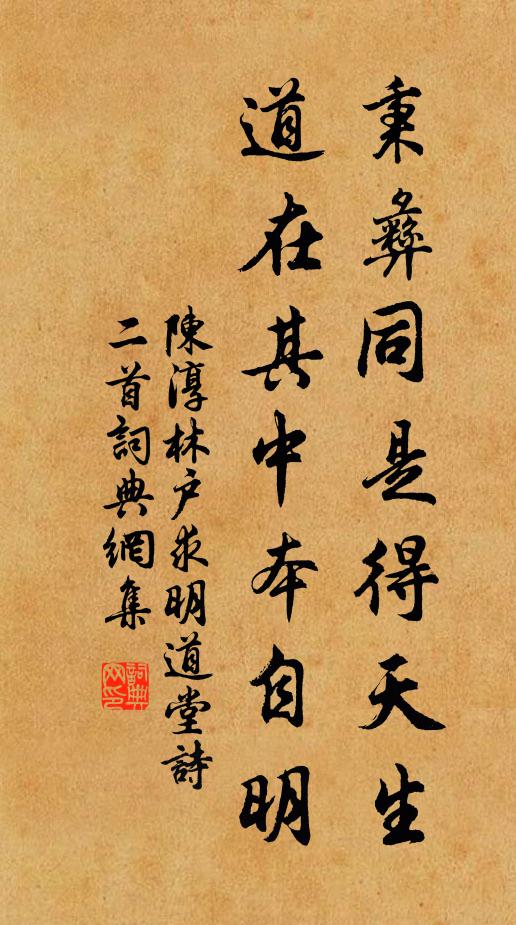 秉彝同是得天生
道在其中本自明
陳淳林户求明道堂詩
二首詞典網集
詞典網印